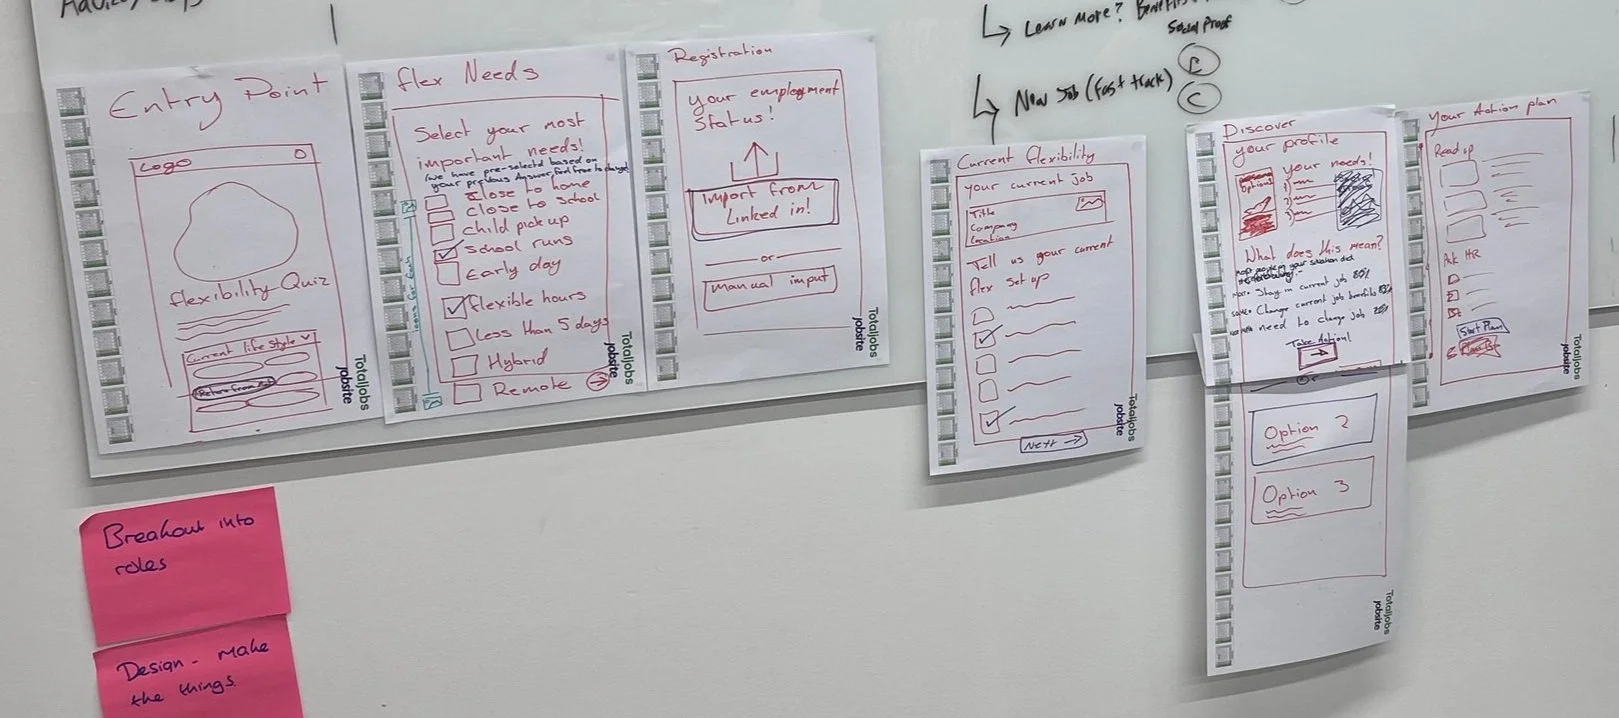 Learn More?
Social Proof
B
New Job (fast track)
C
Entry Point
Logo
flexibility Quiz
Current life style
Totaljobs
jobsite
flex Needs
Select your most
important needs!
(we have pre-selected based on
your previous Answer, feel free to change)
Close to home
Close to School
Child pick up
School runs
Early day
flexible hours
Less than 5 days
Hybrid
Remote
Totaljobs
jobsite
Registration
your employment
Status!
Import from
Linked in!
or
Manual input
Totaljobs
jobsite
Current flexibility
your current job
Title
Company
Location
Tell us your current
flex set up
Next
Totaljobs
jobsite
Discover
your profile
Options
your needs!
1)
2)
3)
What does this mean?
Stay in current job 80%
Change current job benefits
need to change job 20%
Take Action!
Or
Option 2
Option 3
Totaljobs
jobsite
Your Action plan
Read up
Ask HR
Start Plan
Totaljobs
jobsite
Breakout into
roles
Design - make
the things.